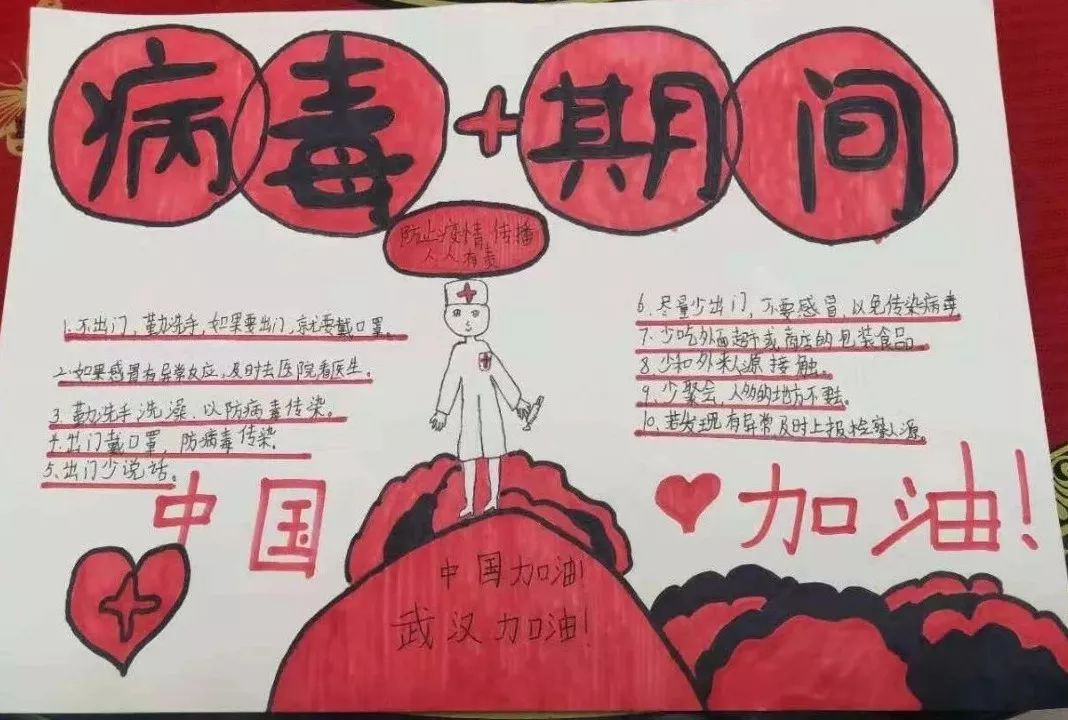 病毒+期间
防止疫情传播
人人有责
1.不出门,勤洗手,如果要出门,就要戴口罩。
2.如果感冒有异常反应,及时去医院看医生。
3.勤洗手洗澡,以防病毒传染。
4.出门戴口罩,防病毒传染。
5.出门少说话。
6.尽量少出门,不要感冒,以免传染病毒
7.少吃外面超市或商店的包装食品。
8.少和外来人源接触。
9.少聚会,人多的地方不要去。
10.若发现有异常及时上报检察人源。
中国
加油!
中国加油!
武汉加油!